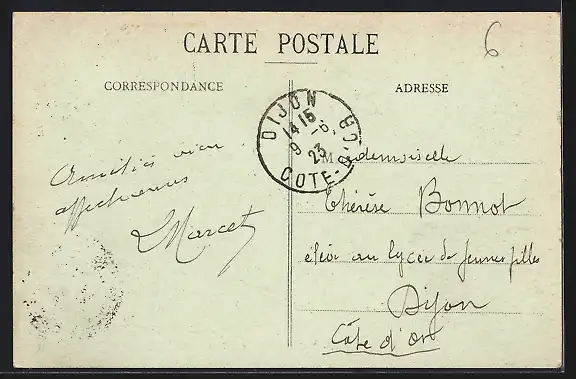 CARTE POSTALE
6
CORRESPONDANCE
ADRESSE
DIJON
14 15
9 -6.
23
COTE-D'OR
Amitiés bien
affectueuses
Marcel
Mademoiselle
Thérèse Bonnot
élève au lycée de Jeunes filles
Dijon
Côte d'Or